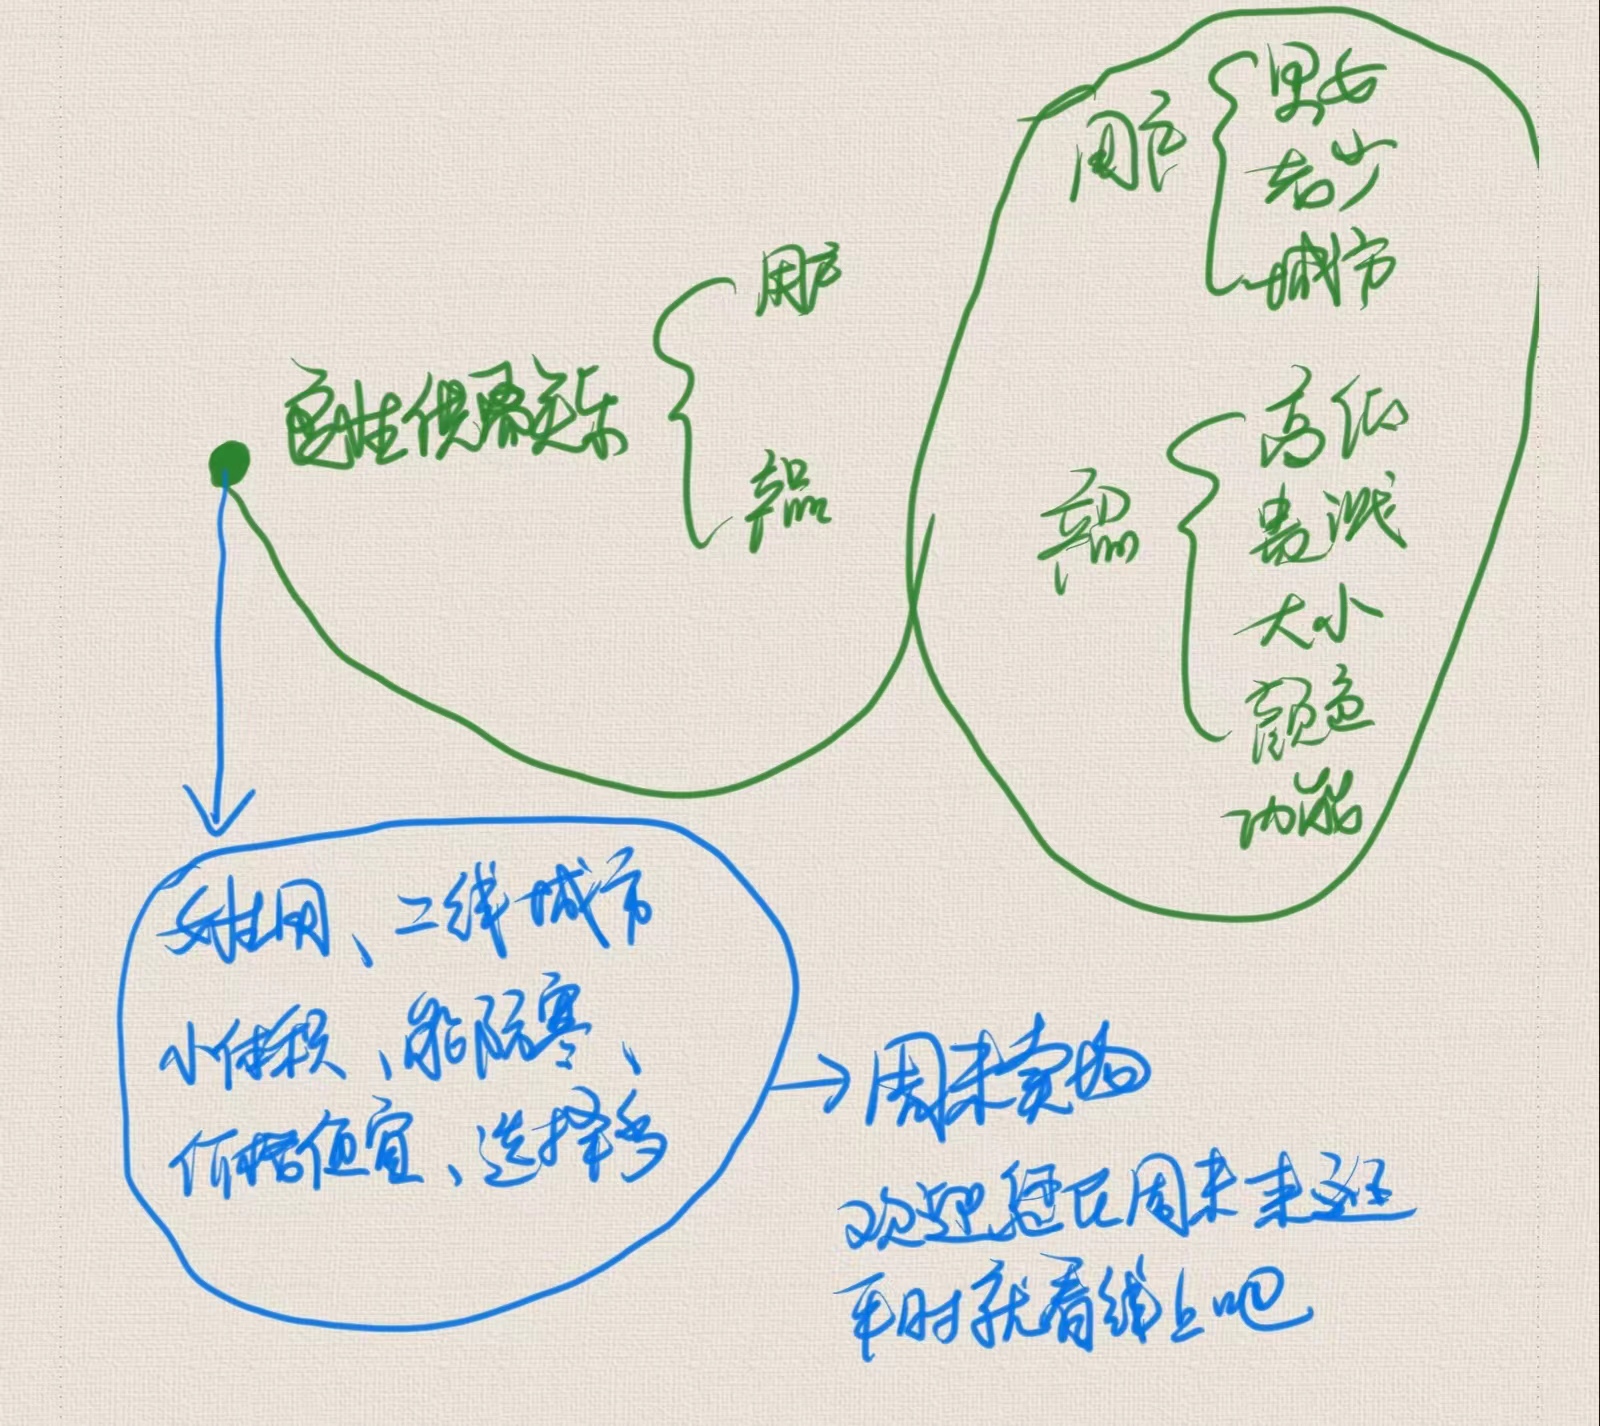 定性供需关系
用户
产品
用户
男女
老少
城市
产品
高低
贵贱
大小
颜色
功能
女性用、二线城市
小体积、能防寒、
价格便宜、选择多
周末卖场
欢迎您在周末来逛
平时就看线上吧